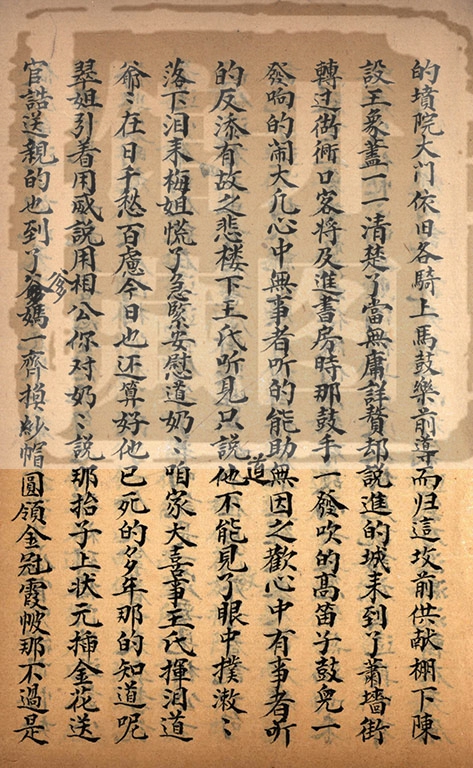 的墳院大门依旧各騎上馬鼓樂前導而归這坟前供献棚下陳
設王象蓋一一清楚了當無庸詳贅却說進的城来到了蕭墻街
轉过衚衕口客将及進書房時那鼓手一發吹的髙笛子鼓兒一
發响的闹大凡心中無事者听的能助無因之歡心中有事者听
的反添有故之悲楼下王氏听見只說他不能見了眼中撲漱〻
落下泪来梅姐慌了急緊安慰道奶〻咱家大喜事王氏揮泪道
爷〻在日千愁百慮今日也还算好他已死的多年那的知道呢
翠姐引着用威說用相公你对奶〻說那抬子上状元揷金花送
官誥送親的也到了爹媽一齊摸紗帽圓領金冠霞帔那不過是
道
爹